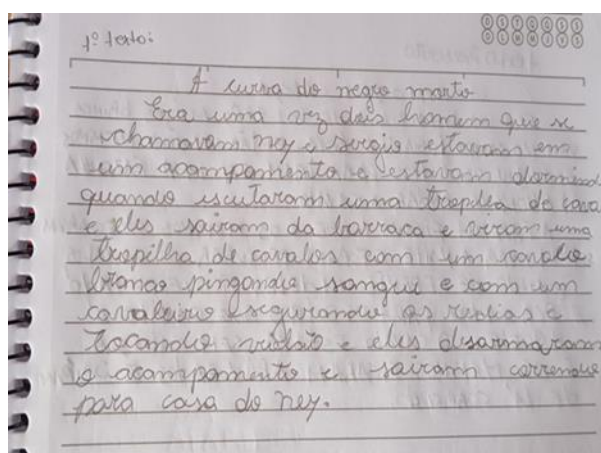 1º texto:
A curva do negro morto
Era uma vez dois homem que se
chamavam ney e sergio estavam em
um acampamento e estavam dormindo
quando escutaram uma tropilha de cava
e eles sairam da barraca e viram uma
tropilha de cavalos com um cavalo
branco pingando sangue e com um
cavaleiro esegurando as redias e
tocando violão e eles desarmaram
o acampamento e sairam correndo
para casa do ney.